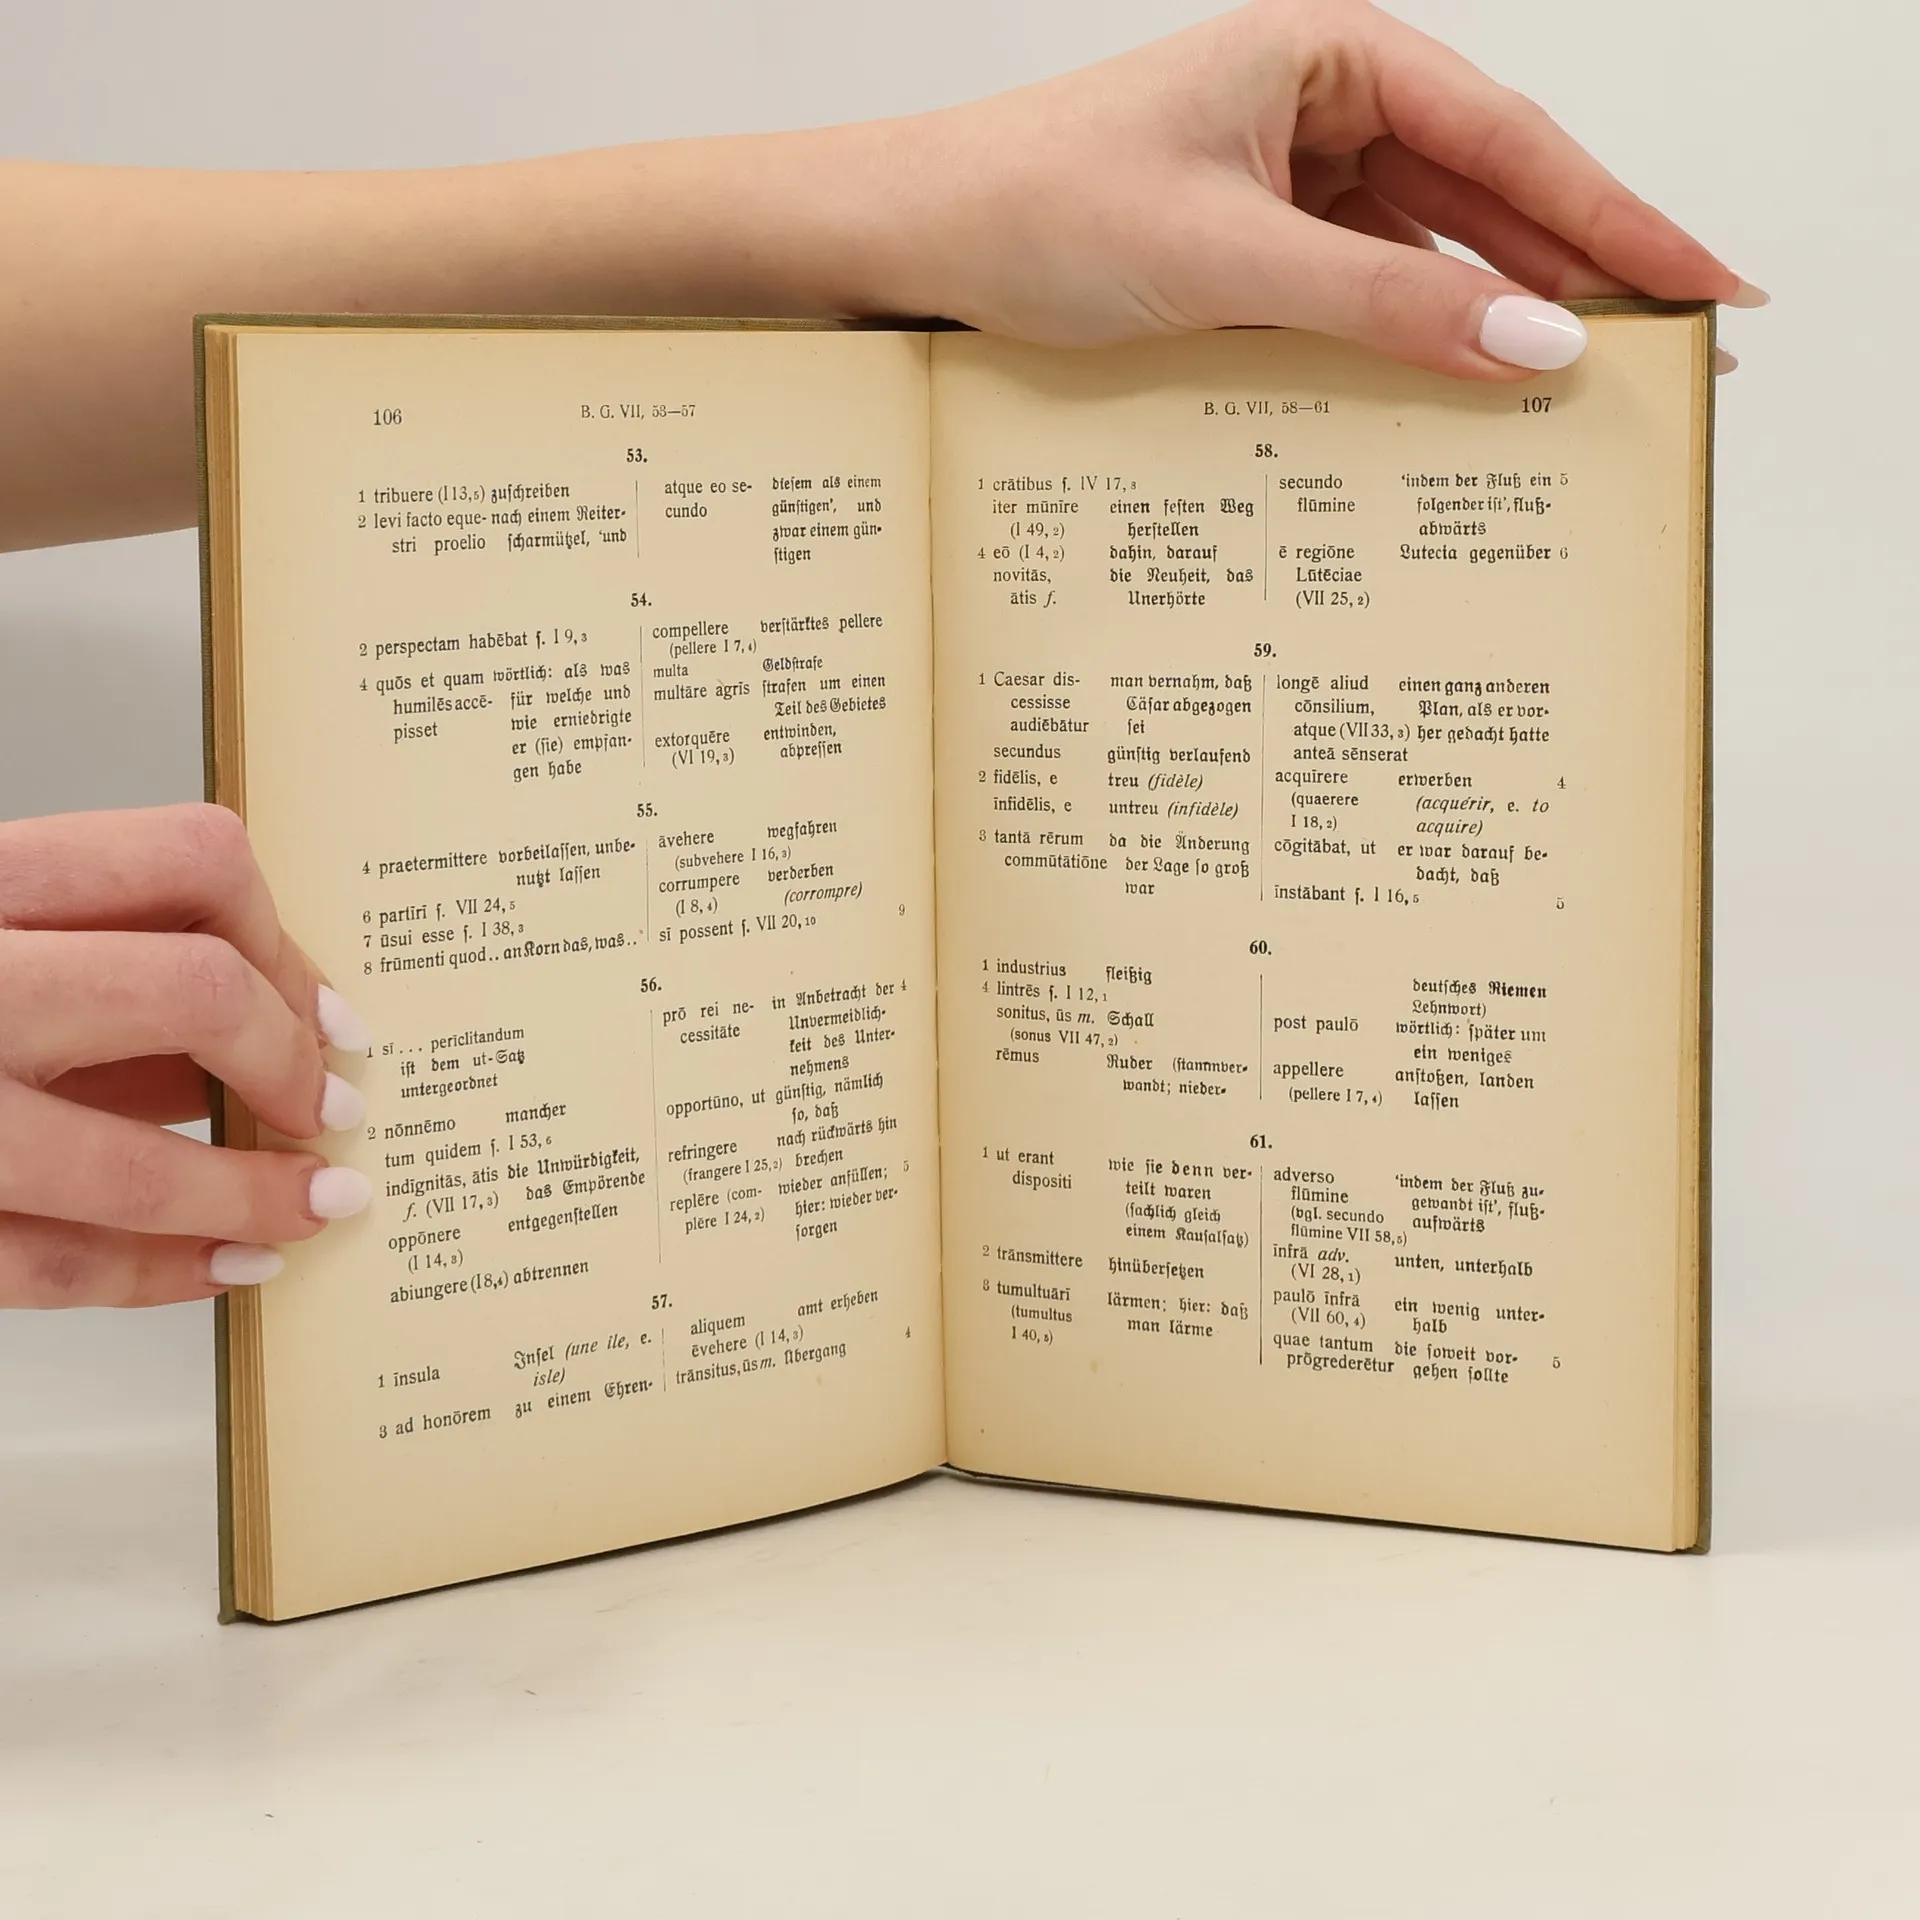 106
B. G. VII, 53—57
53.
1 tribuere (I 13, 5) zuschreiben
2 levi facto eque- nach einem Reiter-
stri proelio scharmützel, 'und
atque eo se- diesem als einem
cundo günstigen', und
zwar einem gün-
stigen
54.
2 perspectam habēbat s. I 9, 3
4 quōs et quam wörtlich: als was
humilēs accē- für welche und
pisset wie erniedrigte
er (sie) empfan-
gen habe
compellere verstärktes pellere
(pellere I 7, 4)
multa Geldstrafe
multāre agrīs strafen um einen
Teil des Gebietes
extorquēre entwinden,
(VI 19, 3) abpressen
55.
4 praetermittere vorbeilassen, unbe-
nutzt lassen
6 partīrī s. VII 24, 5
7 ūsui esse s. I 38, 3
8 frūmenti quod.. an Korn das, was..
āvehere wegfahren
(subvehere I 16, 3)
corrumpere verderben
(I 8, 4) (corrompre)
sī possent s. VII 20, 10 9
56.
1 sī ... perīclitandum
ist dem ut-Satz
untergeordnet
2 nōnnēmo mancher
tum quidem s. I 53, 6
indīgnitās, ātis die Unwürdigkeit,
f. (VII 17, 3) das Empörende
oppōnere entgegenstellen
(I 14, 3)
abiungere (I 8, 4) abtrennen
prō rei ne- in Anbetracht der 4
cessitāte Unvermeidlich-
keit des Unter-
nehmens
opportūno, ut günstig, nämlich
so, daß
refringere nach rückwärts hin
(frangere I 25, 2) brechen
replēre (com- wieder anfüllen; 5
plēre I 24, 2) hier: wieder ver-
sorgen
57.
1 īnsula Insel (une ile, e.
isle)
3 ad honōrem zu einem Ehren-
aliquem amt erheben
ēvehere (I 14, 3)
trānsitus, ūs m. Übergang 4
B. G. VII, 58—61
107
58.
1 crātibus s. IV 17, 8
iter mūnīre einen festen Weg
(I 49, 2) herstellen
4 eō (I 4, 2) dahin, darauf
novitās, die Neuheit, das
ātis f. Unerhörte
secundo 'indem der Fluß ein 5
flūmine folgender ist', fluß-
abwärts
ē regiōne Lutecia gegenüber 6
Lūtēciae
(VII 25, 2)
59.
1 Caesar dis- man vernahm, daß
cessisse Cäsar abgezogen
audiēbātur sei
secundus günstig verlaufend
2 fidēlis, e treu (fidèle)
īnfidēlis, e untreu (infidèle)
3 tantā rērum da die Änderung
commūtātiōne der Lage so groß
war
longē aliud einen ganz anderen
cōnsilium, Plan, als er vor-
atque (VII 33, 3) her gedacht hatte
anteā sēnserat
acquīrere erwerben 4
(quaerere (acquérir, e. to
I 18, 2) acquire)
cōgitābat, ut er war darauf be-
dacht, daß
īnstābant s. I 16, 5 5
60.
1 industrius fleißig
4 lintrēs s. I 12, 1
sonitus, ūs m. Schall
(sonus VII 47, 2)
rēmus Ruder (stammver-
wandt; nieder-
deutsches Riemen
Lehnwort)
post paulō wörtlich: später um
ein weniges
appellere anstoßen, landen
(pellere I 7, 4) lassen
61.
1 ut erant wie sie denn ver-
dispositi teilt waren
(sachlich gleich
einem Kausalsatz)
2 trānsmittere hinübersetzen
3 tumultuārī lärmen; hier: daß
(tumultus man lärme
I 40, 5)
adverso 'indem der Fluß zu-
flūmine gewandt ist', fluß-
(vgl. secundo aufwärts
flūmine VII 58, 5)
īnfrā adv. unten, unterhalb
(VI 28, 1)
paulō īnfrā ein wenig unter-
(VII 60, 4) halb
quae tantum die soweit vor- 5
prōgrederētur gehen sollte